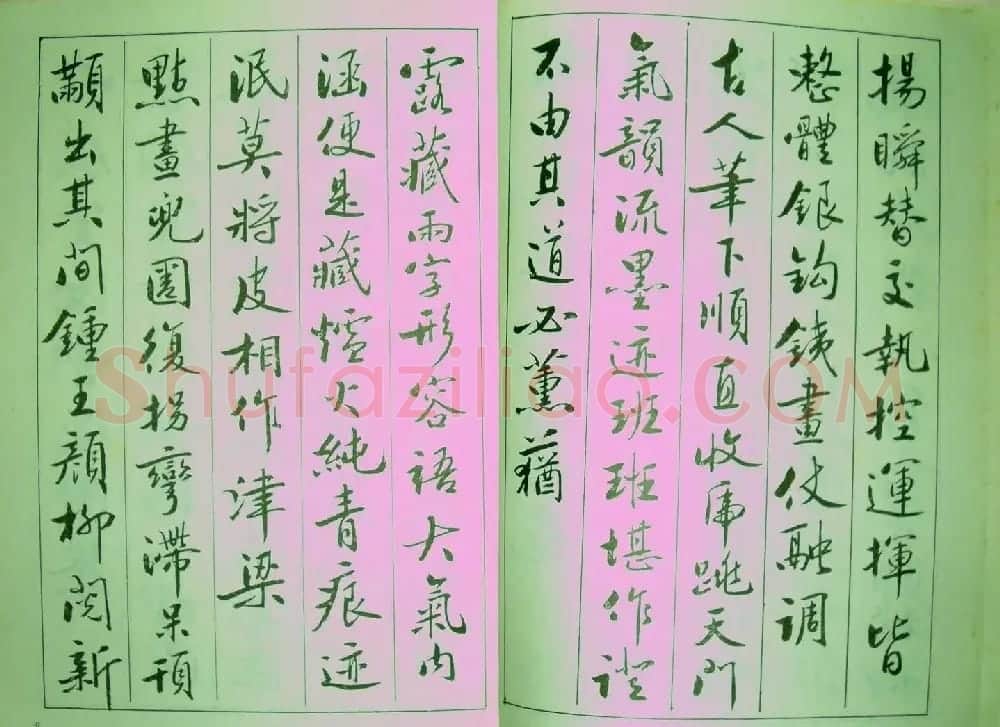 揚瞬替交執控運揮皆
整體銀鈎鉄畫仗融調
古人筆下順直收席跳天門
氣韻流墨迹班班堪作證
不由其道必薰蕕
露藏兩字形容語大氣内
涵便是藏爐火純青痕迹
泯莫將皮相作津梁
點畫兜圈復拐彎滯呆頑
纇出其間鍾王顔柳閱新
Shufaziliao.COM